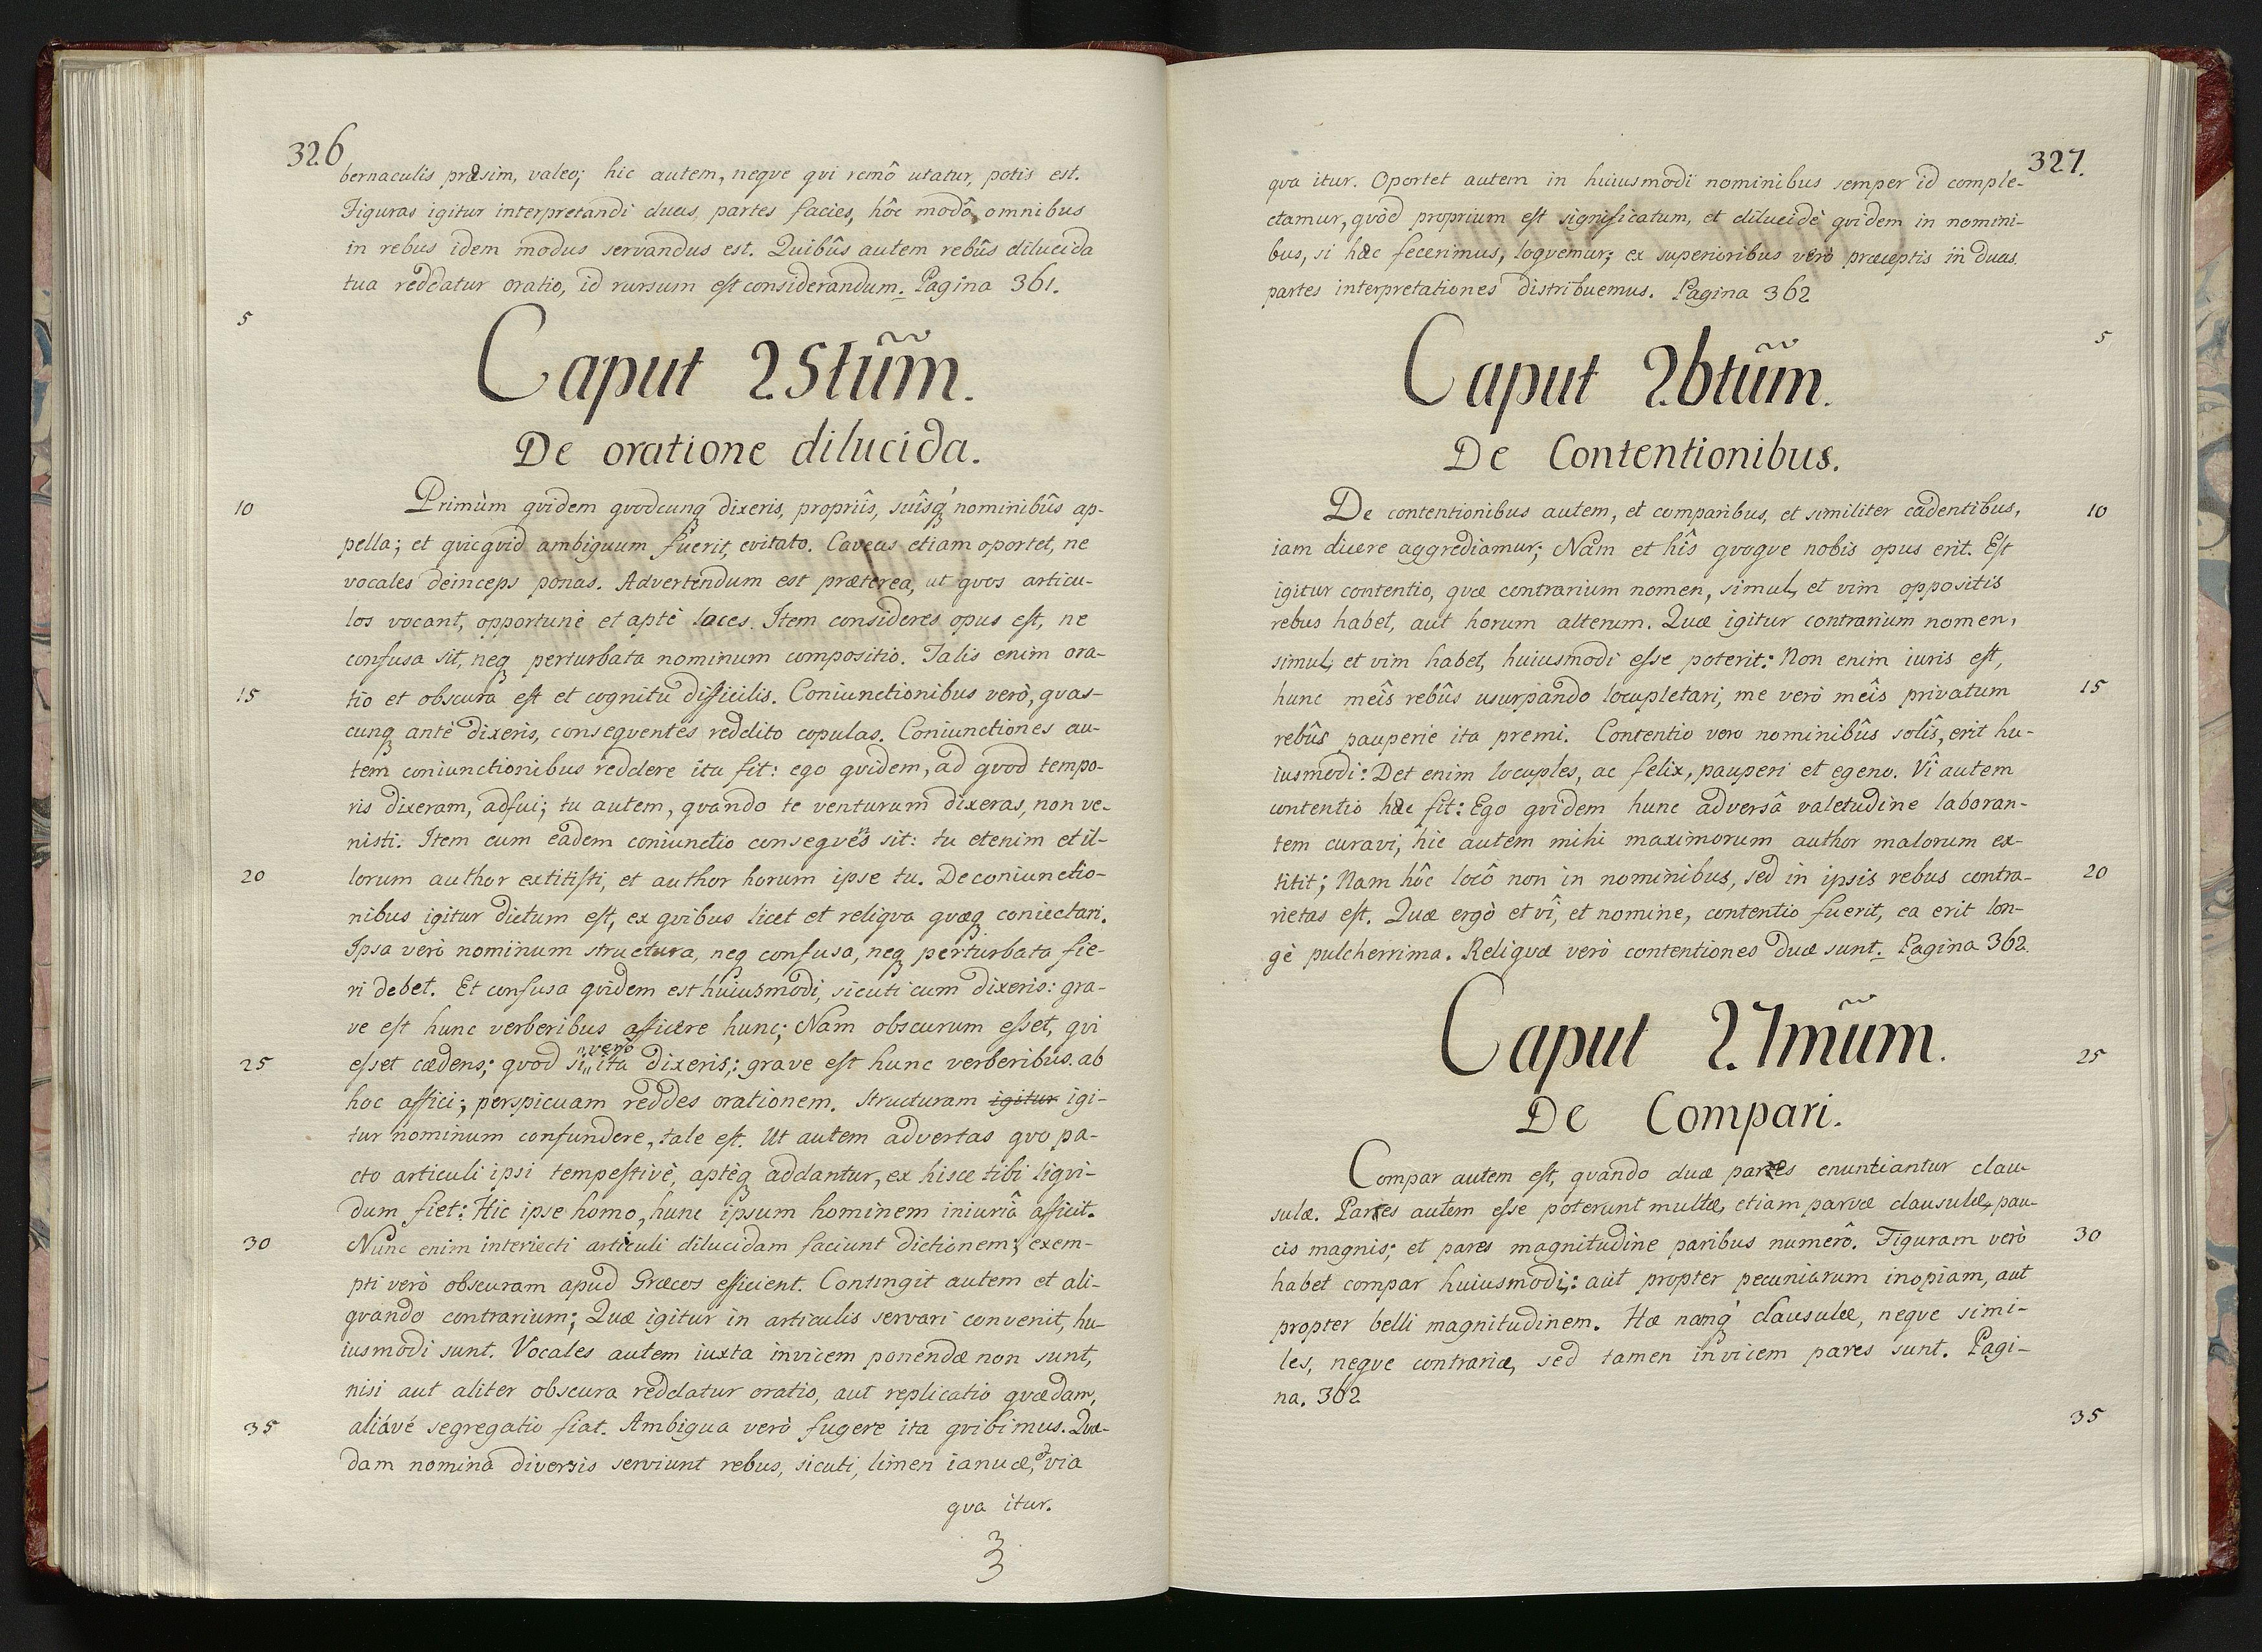 326
bernaculis præsim, valeo; hic autem, neqve qvi remô utatur, potis est.
Figuras igitur interpretandi duas, partes facies, hôc modô, omnibus
in rebus idem modus servandus est. Quibûs autem rebûs dilucida
tua reddatur oratio, id rursum est considerandum. Pagina 361.
5
Caput 25tum.
De oratione dilucida.
10 Primùm qvidem qvodcunq dixeris, propriîs, suîsq́ nominibûs ap-
pella; et qvicqvid ambiguum fuerit, evitato. Caveas etiam oportet, ne
vocales deinceps ponas. Advertendum est præterea, ut qvos articu-
los vocant, opportunè et aptè loces. Item consideres opus est, ne
confusa sit, neq perturbata nominum compositio. Talis enim ora-
15 tio et obscura est et cognitu difficilis. Coniunctionibus verò, qvas-
cunq antè dixeris, conseqventes reddito copulas. Coniunctiones au-
tem coniunctionibus reddere ita fit: ego qvidem, ad qvod tempo-
ris dixeram, adfui; tu autem, qvando te venturum dixeras, non ve-
nisti. Item cum eadem coniunctio conseqvens sit: tu etenim et il-
20 lorum author extitisti, et author horum ipse tu. De coniunctio-
nibus igitur dictum est, ex qvibus licet et reliqva qvæq coniectari.
Ipsa verò nominum structura, neq confusa, neq perturbata fie-
ri debet. Et confusa qvidem est huiusmodi, sicuti cum dixeris: gra-
ve est hunc verberibus afficere hunc; Nam obscurum esset, qvi
25 esset cædens; qvod si verò ita dixeris: grave est hunc verberibus ab
hoc affici; perspicuam reddes orationem. Structuram igitur igi-
tur nominum confundere, tale est. Ut autem advertas qvo pa-
cto articuli ipsi tempestivè, aptèq addantur, ex hisce tibi liqvi-
dum fiet: Hic ipse homo, hunc ipsum hominem iniuriâ afficit.
30 Nunc enim interiecti articuli dilucidam faciunt dictionem; exem-
pti verò obscuram apud Græcos efficient. Contingit autem et ali-
qvando contrarium; Quæ igitur in articulis servari convenit, hu-
iusmodi sunt. Vocales autem iuxta invicem ponendæ non sunt,
nisi aut aliter obscura reddatur oratio, aut replicatio qvædam,
35 aliávé segregatio fiat. Ambigua verò fugere ita qvibimus. Quæ-
dam nomina diversis serviunt rebus, sicuti, limen ianuæ, et via
qva itur.
327.
qva itur. Oportet autem in huiusmodi nominibus semper id comple-
ctamur, qvòd proprium est significatum, et dilucidè qvidem in nomini-
bus, si hæc fecerimus, loqvemur; ex superioribus verò præceptis in duas
partes interpretationes distribuemus. Pagina 362
5
Caput 26tum.
De Contentionibus.
De contentionibus autem, et comparibus, et similiter cadentibus, 10
iam dicere aggrediamur; Nam et hîs qvoqve nobis opus erit. Est
igitur contentio, qvæ contrarium nomen, simul, et vim oppositis
rebus habet, aut horum alterum. Quæ igitur contrarium nomen,
simul, et vim habet, huiusmodi esse poterit: Non enim iuris est,
hunc meîs rebûs usurpando locupletari, me verò meîs privatum 15
rebûs pauperie ita premi. Contentio vero nominibûs solîs, erit hu-
iusmodi: Det enim locuples, ac felix, pauperi et egeno. Vî autem
contentio hæc fit: Ego qvidem hunc adversâ valetudine laboran-
tem curavi, hic autem mihi maximorum author malorum ex-
titit; Nam hôc locô non in nominibus, sed in ipsis rebus contra- 20
rietas est. Quæ ergò et vî, et nomine, contentio fuerit, ea erit lon-
gè pulcherrima. Reliqvæ verò contentiones duæ sunt. Pagina 362
Caput 27mum.
25
De Compari.
Compar autem est, qvando duæ pares enuntiantur clau-
sulæ. Pares autem esse poterunt multæ, etiam parvæ clausulæ, pau-
cis magnis; et pares magnitudine paribus numerô. Figuram verò 30
habet compar huiusmodi: aut propter pecuniarum inopiam, aut
propter belli magnitudinem. Hæ namq́ clausulæ, neqve simi-
les, neqve contrariæ, sed tamen invicem pares sunt. Pagi-
na. 362
35